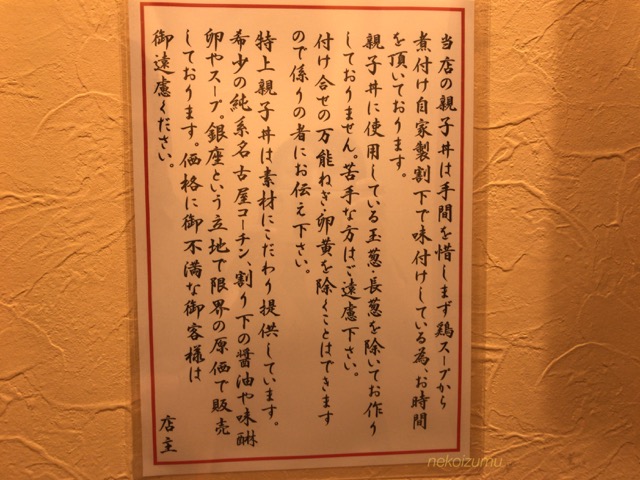 当店の親子丼は手間を惜しまず鶏スープから
煮付け自家製割下で味付けしている為、お時間
を頂いております。
親子丼に使用している玉葱・長葱を除いてお作り
しておりません。苦手な方はご遠慮下さい。
付け合せの万能ねぎ・卵黄を除くことはできます
ので係りの者にお伝え下さい。
特上親子丼は素材にこだわり提供しています。
希少の純系名古屋コーチン、割り下の醤油や味醂
卵やスープ。銀座という立地で限界の原価で販売
しております。価格に御不満な御客様は
御遠慮ください。
店主
nekoizumu.